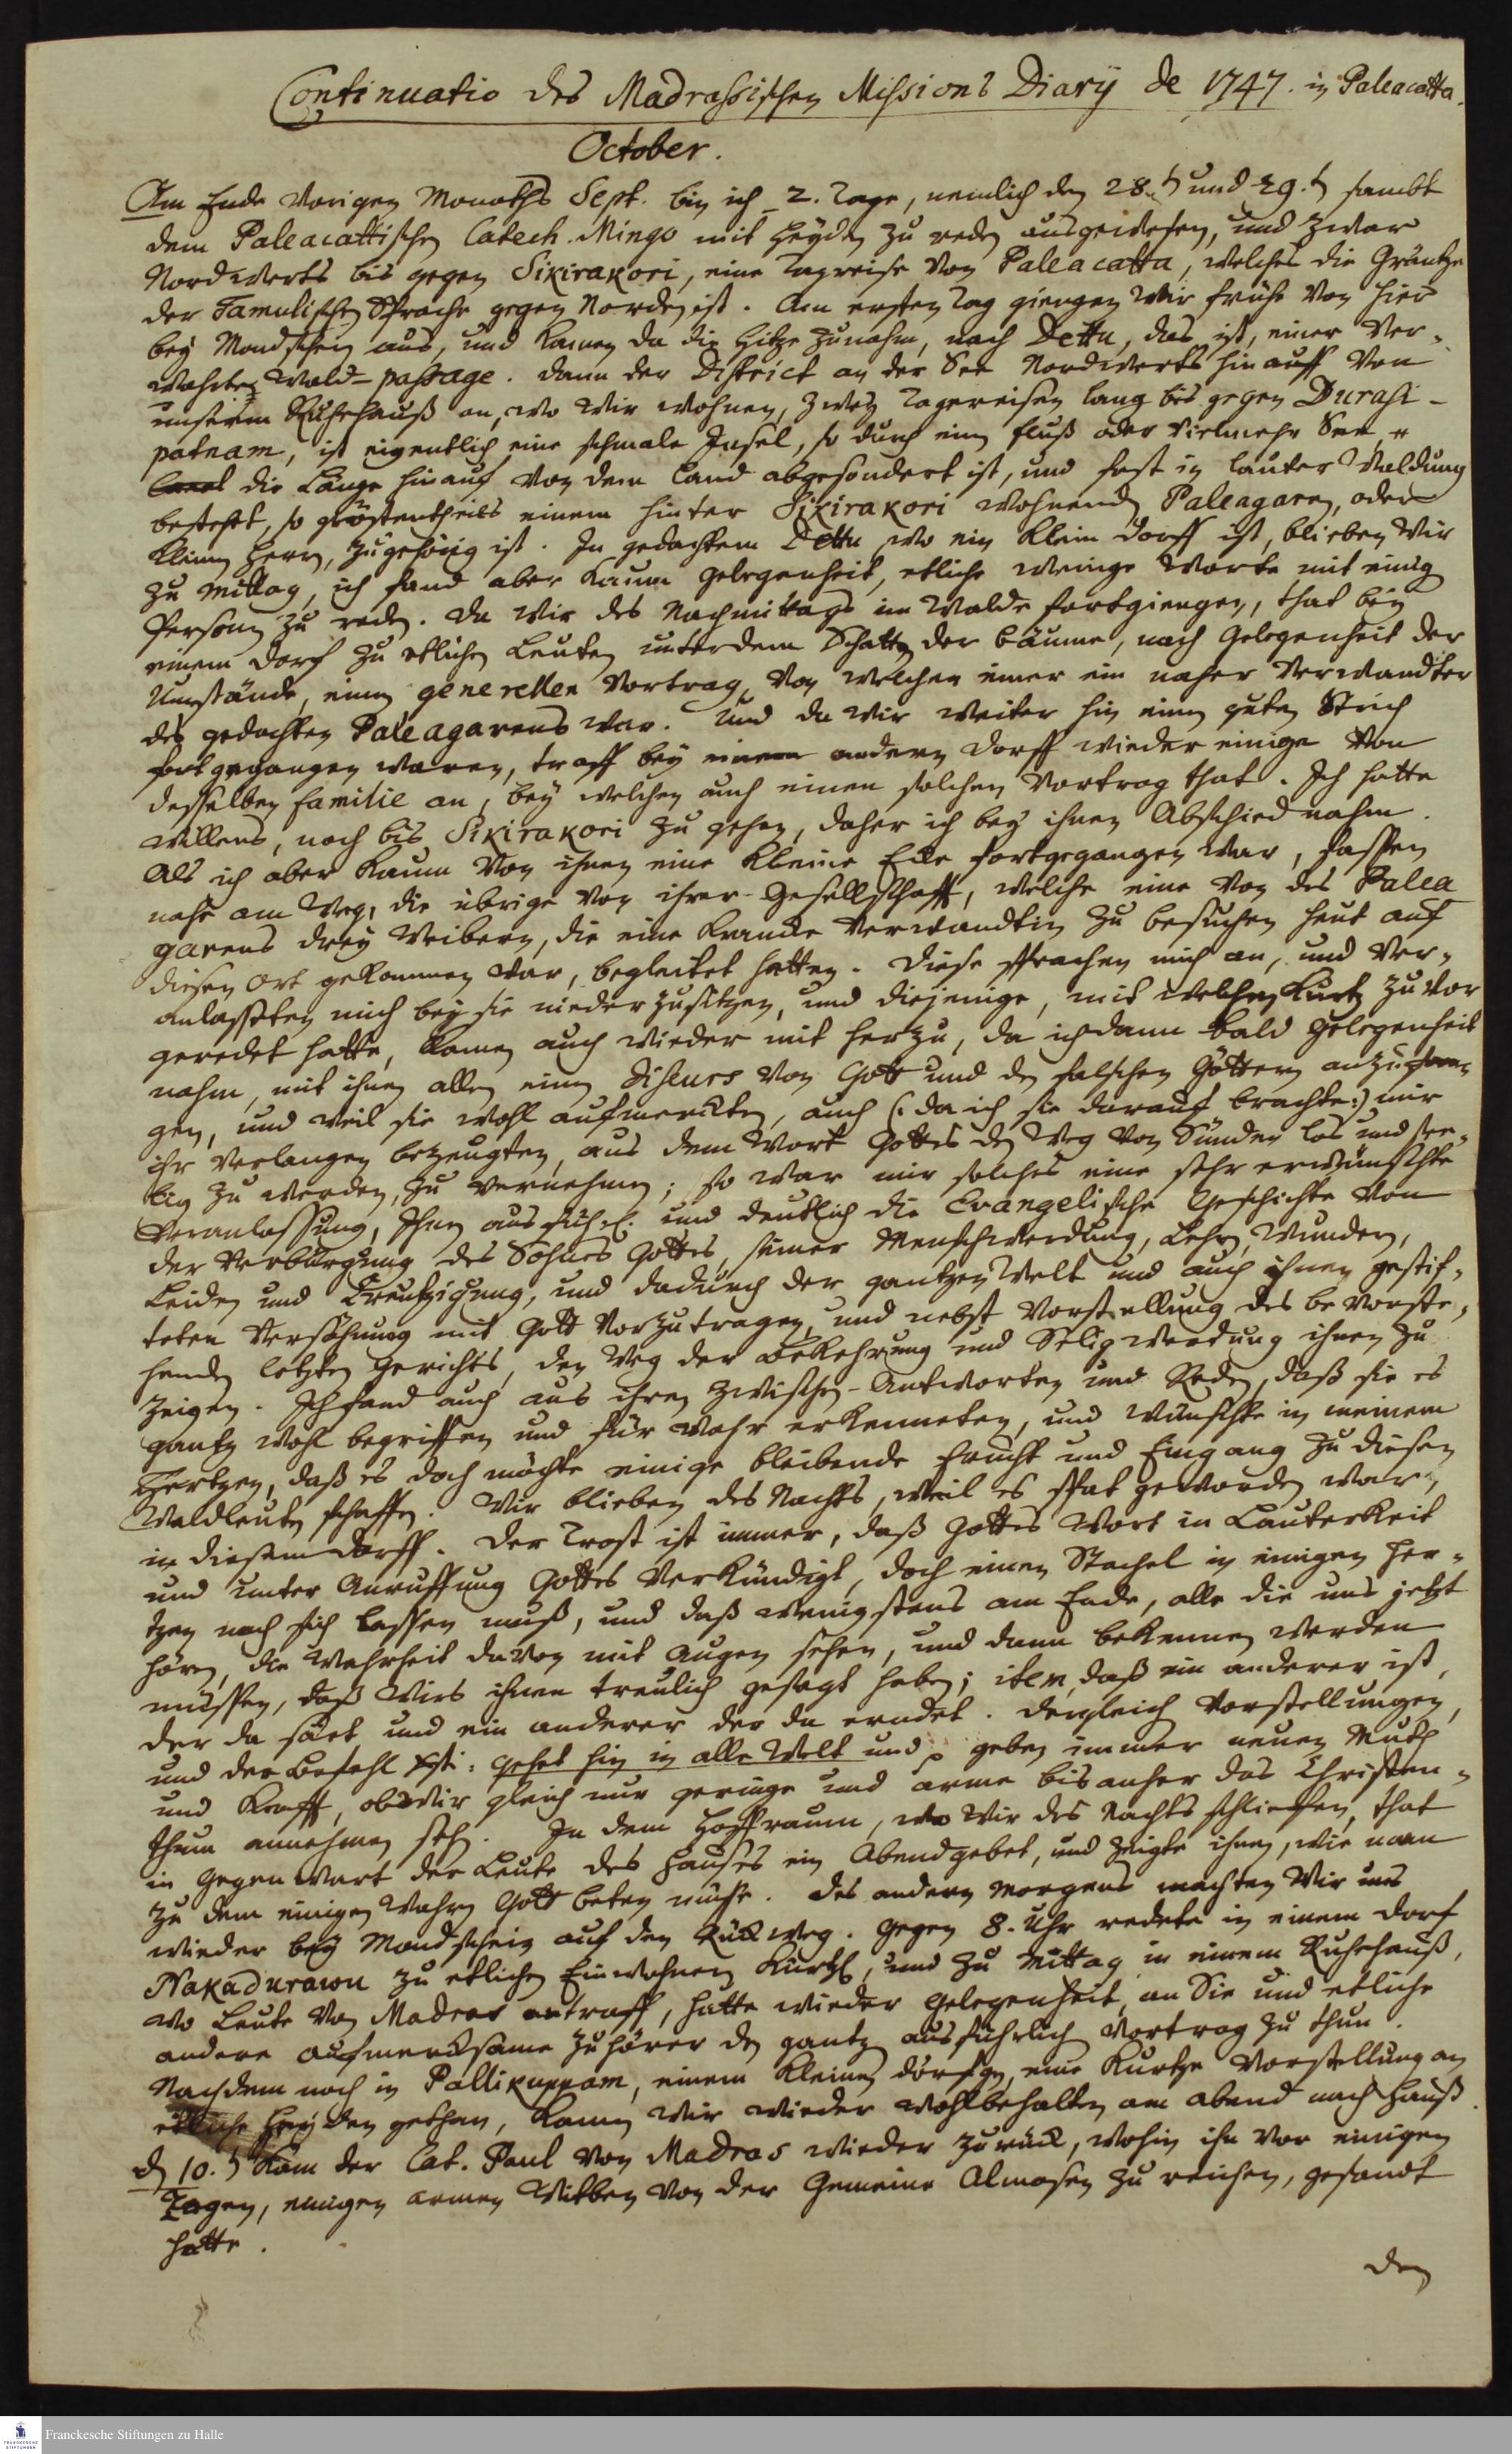 Continuatio des Madrassischen Missions Diarij de 1747. in Paleacatta.
October.
Am Ende vorigen Monaths Sept. bin ich 2. Tage, nemlich den 28.t und 29.t sambt
dem Paleacattischen Catech. Mingo mit Heyden zu reden ausgewesen, und zwar
Nordwerts bis gegen Sikirakori, eine Tagreise von Paleacatta, welches die Gräntze
der Tamulischen Sprache gegen Norden ist. Am ersten Tag giengen wir frühe von hier
bey Mondschein aus, und kamen da die Hitze zunahm, nach Dettu, das ist, einer ver-
wahrten Wald-passage. Dann der District an der See Nordwerts hinauff von
unserm Ruhehauß an, wo wir wohnen, zwey Tagereisen lang bis gegen Durasi-
patnam, ist eigentlich eine schmale Insel, so durch einen Fluß oder vielmehr See
die Länge hinauf von dem Land abgesondert ist, und fast in lauter Waldung
bestehet, so gröstentheils einem hinter Sikirakori wohnenden Paleagaren, oder
kleinen Herrn, zugehörig ist. In gedachtem Dettu wo ein klein Dorff ist, blieben wir
zu Mittag, ich fand aber kaum Gelegenheit, etliche wenige Worte mit einig
Personen zu reden. Da wir des Nachmittags im Walde fortgiengen, that bey
einem Dorf zu etlichen Leuten unter dem Schatten der Bäume, nach Gelegenheit der
Umstände, einen generellen Vortrag, von welchen einer ein naher Verwandter
des gedachten Paleagarens war. Und da wir weiter hin einen guten Strich
fortgegangen waren, traff bey einem andern Dorff wieder einige von
desselben Familie an, bey welchen auch einen solchen Vortrag that. Ich hatte
willens, noch bis Sikirakori zu gehen, daher ich bey ihnen Abschied nahm.
Als ich aber kaum von ihnen eine kleine Ecke fortgegangen war, sassen
nahe am Weg, die übrige von ihrer Gesellschafft, welche eine von des Palea
garens drey Weibern, die eine krancke Verwandtin zu besuchen heut auf
diesen Ort gekommen war, begleitet hatten. Diese sprachen mich an, und ver-
anlasseten mich bey sie nieder zusitzen, und diejenige, mit welchen kurtz zuvor
geredet hatte, kamen auch wieder mit herzu, da ich dann bald Gelegenheit
nahm, mit ihnen allen einen Discurs von Gott und den falschen Göttern anzufan-
gen, und weil sie wohl aufmerckten, auch (: da ich sie darauf brachte :) mir
ihr Verlangen bezeugten, aus dem Wort Gottes den Weg von Sünden los und see-
lig zu werden, zu vernehmen; so war mir solches eine sehr erwünschte
Veranlassung, Ihnen ausführl. und deutlich die Evangelische Geschichte von
der Verbürgung des Sohnes Gottes, seiner Menschwerdung, Lehre, Wundern,
Leiden und Creutzigung, und dadurch der gantzen Welt und auch ihnen gestif-
teten Versöhnung mit Gott vorzutragen, und nebst Vorstellung des bevorste-
henden letzten Gerichts, den Weg der Bekehrung und Seligwerdung ihnen zu
zeigen. Ich fand auch aus ihren Zwischen-Antworten und Reden, daß sie es
gantz wohl begriffen und für wahr erkenneten, und wünschte in meinem
Hertzen, daß es doch möchte einige bleibende Frucht und Eingang zu diesen
Waldleuten schaffen. Wir blieben des Nachts, weil es spat geworden war,
in diesem Dorff. Der Trost ist immer, daß Gottes Wort in Lauterkeit
und unter Anruffung Gottes verkündigt, doch einen Stachel in einigen Her-
tzen nach sich lassen muß, und daß wenigstens am Ende, alle die uns jetzt
hören, die Wahrheit davon mit Augen sehen, und dann bekennen werden
müssen, daß wirs ihnen treulich gesagt haben; item, daß ein anderer ist,
der da säet und ein anderer der da erndet. Dergleich Vorstellungen,
und der Befehl Xsti: gehet hin in alle Welt und geben immer neuen Muth
und Krafft, ob wir gleich nur geringe und arme bisanher das Christen-
thum annehmen sehn. In dem Hoffraum, wo wir des Nachts schlieffen, that
in Gegenwart der Leute des Hauses ein Abendgebet, und zeigte ihnen, wie man
zu dem einigen wahren Gott beten müsse. Des andern Morgens machten wir uns
wieder bey Mondschein auf den Rückweg. Gegen 8. Uhr redete in einem Dorf
Nakaduraiou zu etlichen Einwohnern kürtzl, und zu Mittag in einem Ruhehauß,
wo Leute von Madras antraff, hatte wieder Gelegenheit, an Sie und etliche
andere aufmercksame Zuhörer den gantz ausführlich Vortrag zu thun.
Nachdem noch in Pallikuppam, einem kleinen Dörfgen, eine kurtze Vorstellung an
etliche Heyden gethan, kamen wir wieder wohlbehalten am Abend nach Hauß.
d 10.t kam der Cat. Paul von Madras wieder zurück, wohin ihn vor einigen
Tagen, einigen armen Witben von der Gemeine Almosen zu reichen, gesandt
hatte.
den
Franckesche Stiftungen zu Halle